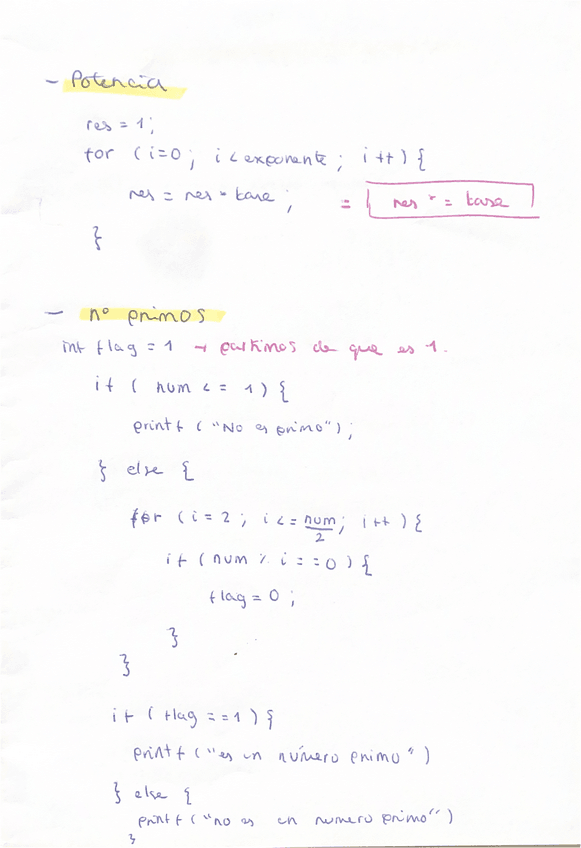 - Potencia
res = 1;
for (i=0; i<exponente; i++) {
res = res * base; = res * = base
}
- nº primos
int flag = 1 → partimos de que es 1.
if ( num <= 1) {
printf ("No es primo");
} else {
for (i=2; i<= num/2; i++) {
if (num % i ==0) {
flag = 0;
}
}
if (flag ==1) {
printf ("es un número primo")
} else {
printf ("no es un numero primo")
}